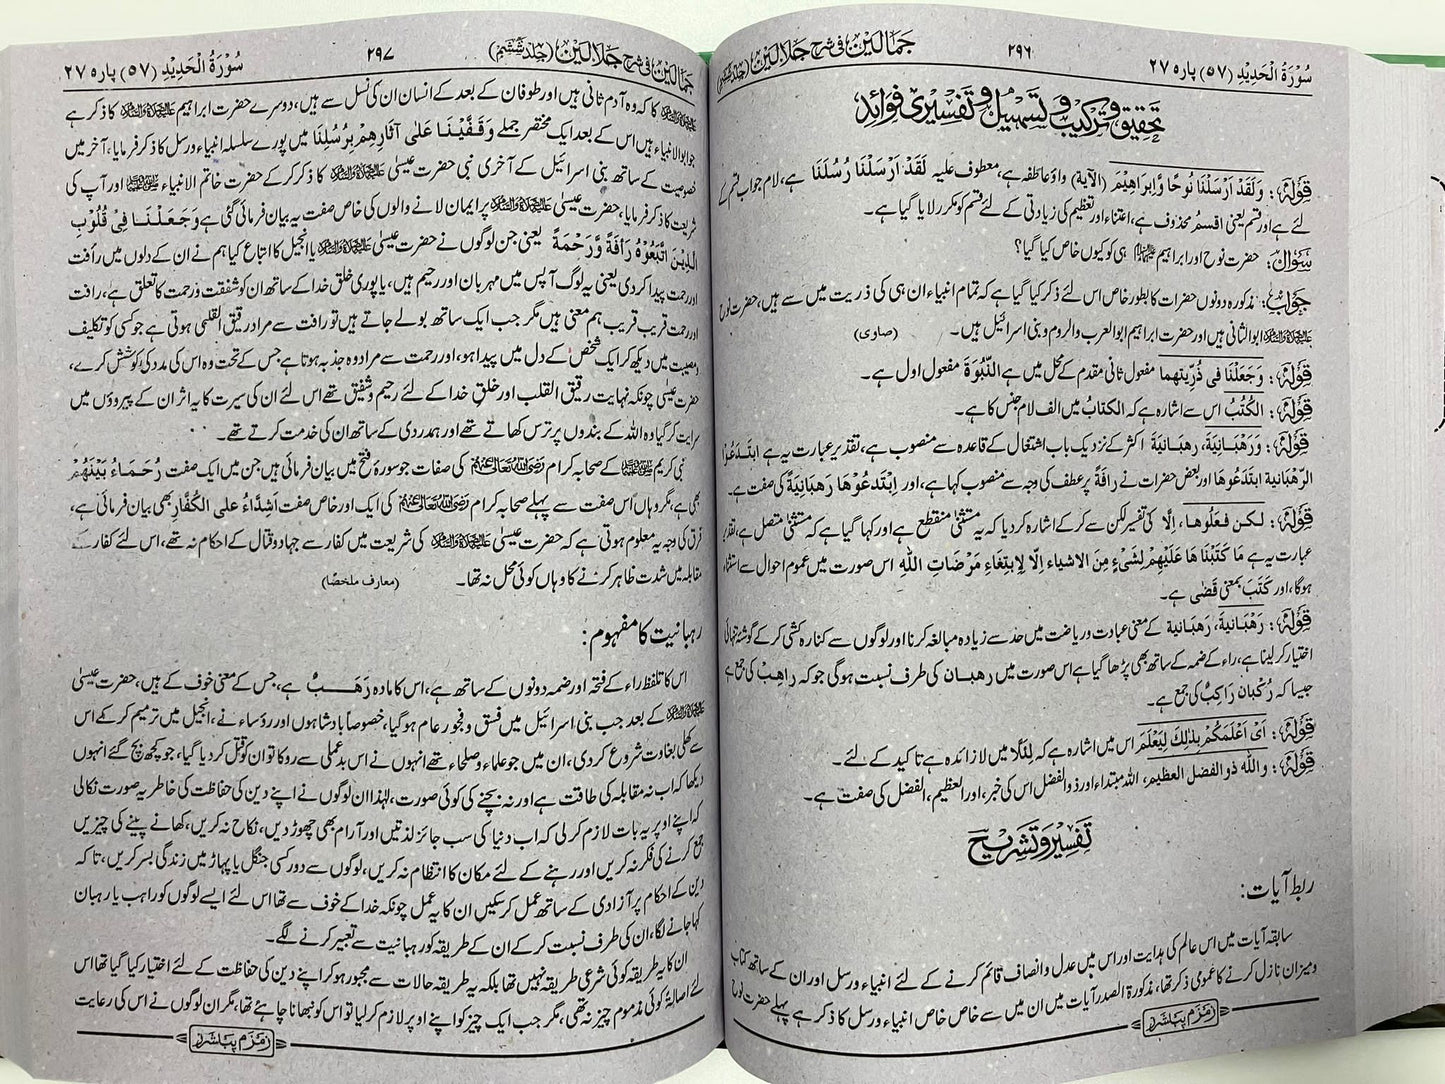 سُوْرَةُ الْحَدِيْدِ (٥٧) پارہ ٢٧
٢٩٦
جَمَالَیْن فی شرح جَلَالَیْن (جلد ششم)
تحقیق و ترکیب و تسہیل و تفسیری فوائد
قولہ: وَلَقَدْ اَرْسَلْنَا نُوحًا وَّاِبْرَاهِیْمَ (الآیة) واؤ عاطفہ ہے، معطوف علیہ لَقَدْ اَرْسَلْنَا رُسُلَنَا ہے، لام جواب قسم کے
لئے ہے اور قسم یعنی اقسمُ محذوف ہے، اعتناء اور تعظیم کی زیادتی کے لئے قسم کو مکرر لایا گیا ہے۔
سوال: حضرت نوح اور ابراہیم ﷩ ہی کو کیوں خاص کیا گیا؟
جواب: مذکورہ دونوں حضرات کا بطور خاص اس لئے ذکر کیا گیا ہے کہ تمام انبیاء ان ہی کی ذریت میں سے ہیں، حضرت نوح
علیہ الصلاۃ والسلام ابو الثانی ہیں اور حضرت ابراہیم ابو العرب والروم و بنی اسرائیل ہیں۔ (صاوی)
قولہ: وَجَعَلْنَا فی ذُرِّیَّتِهِما مفعول ثانی مقدم کے محل میں ہے النُّبُوَّةَ مفعول اول ہے۔
قولہ: الکُتُبُ اس سے اشارہ ہے کہ الکتابُ میں الف لام جنس کا ہے۔
قولہ: وَرَهْبَانِیَّةَ، رهبانیَةَ اکثر کے نزدیک باب اشتغال کے قاعدہ سے منصوب ہے، تقدیر عبارت یہ ہے ابتَدَعُوْا
الرَّهْبَانیة ابتَدَعُوهَا اور بعض حضرات نے رافَةً پر عطف کی وجہ سے منصوب کہا ہے، اور اِبْتَدَعُوْهَا رَهْبَانِیَّةً کی صفت ہے۔
قولہ: لکن فَعلُوها، اِلَّا کی تفسیر لکن سے کر کے اشارہ کر دیا کہ یہ مستثنیٰ منقطع ہے اور کہا گیا ہے کہ مستثنیٰ متصل ہے، تقدیر
عبارت یہ ہے مَا كَتَبْنَا هَا عَلَیْهِمْ لِشَیْءٍ مِنَ الاشیاء اِلَّا لِابتِغَاءِ مَرْضَاتِ اللهِ اس صورت میں عموم احوال سے استثناء
ہوگا، اور کَتَبَ بمعنی قَضٰی ہے۔
قولہ: رَهْبَانیةَ، رَهبَانیة کے معنی عبادت و ریاضت میں حد سے زیادہ مبالغہ کرنا اور لوگوں سے کنارہ کشی کر کے گوشہ تنہائی
اختیار کر لینا ہے، راء کے ضمہ کے ساتھ بھی پڑھا گیا ہے اس صورت میں رهبان کی طرف نسبت ہوگی جو کہ راهِبٌ کی جمع ہے
جیسا کہ رُکبان راکِبٌ کی جمع ہے۔
قولہ: اَیْ اَعْلَمَكُمْ بِذٰلِكَ لِیَعْلَمَ اس میں اشارہ ہے کہ لِئَلَّا میں لا زائدہ ہے تاکید کے لئے۔
قولہ: واللّٰه ذو الفضل العظیم، اللّٰه مبتداء اور ذو الفضل اس کی خبر، اور العظیم، الفضل کی صفت ہے۔
تفسیر و تشریح
ربط آیات:
سابقہ آیات میں اس عالم کی ہدایت اور اس میں عدل و انصاف قائم کرنے کے لئے انبیاء و رسل اور ان کے ساتھ کتاب
و میزان نازل کرنے کا عمومی ذکر تھا، مذکورۃ الصدر آیات میں ان میں سے خاص خاص انبیاء و رسل کا ذکر ہے پہلے حضرت نوح
زمزم پبلشرز
سُوْرَةُ الْحَدِيْدِ (٥٧) پارہ ٢٧
٢٩٧
جَمَالَیْن فی شرح جَلَالَیْن (جلد ششم)
علیہ الصلاۃ والسلام کا کہ وہ آدم ثانی ہیں اور طوفان کے بعد کے انسان ان کی نسل سے ہیں، دوسرے حضرت ابراہیم علیہ الصلاۃ والسلام کا ذکر ہے
جو ابو الانبیاء ہیں اس کے بعد ایک مختصر جملے وَقَفَّیْنَا عَلٰی آثَارِهِمْ بِرُسُلِنَا میں پورے سلسلہ انبیاء و رسل کا ذکر فرمایا، آخر میں
خصوصیت کے ساتھ بنی اسرائیل کے آخری نبی حضرت عیسیٰ علیہ الصلاۃ والسلام کا ذکر کر کے حضرت خاتم الانبیاء ﷺ اور آپ کی
شریعت کا ذکر فرمایا، حضرت عیسیٰ علیہ الصلاۃ والسلام پر ایمان لانے والوں کی خاص صفت یہ بیان فرمائی گئی ہے وَجَعَلْنَا فِیْ قُلُوْبِ
الَّذِیْنَ اتَّبَعُوْهُ رَاْفَةً وَّرَحْمَةً یعنی جن لوگوں نے حضرت عیسیٰ علیہ الصلاۃ والسلام یا انجیل کا اتباع کیا ہم نے ان کے دلوں میں رأفت
اور رحمت پیدا کر دی یعنی یہ لوگ آپس میں مہربان اور رحیم ہیں، یا پوری خلق خدا کے ساتھ ان کو شفقت و رحمت کا تعلق ہے، رافت
اور رحمت قریب قریب ہم معنی ہیں مگر جب ایک ساتھ بولے جاتے ہیں تو رافت سے مراد رقیق القلبی ہوتی ہے جو کسی کو تکلیف
و مصیبت میں دیکھ کر ایک شخص کے دل میں پیدا ہو، اور رحمت سے مراد وہ جذبہ ہوتا ہے جس کے تحت وہ اس کی مدد کی کوشش کرے،
حضرت عیسیٰ چونکہ نہایت رقیق القلب اور خلق خدا کے لئے رحیم و شفیق تھے اس لئے ان کی سیرت کا یہ اثر ان کے پیروؤں میں
سرایت کر گیا وہ اللہ کے بندوں پر ترس کھاتے تھے اور ہمدردی کے ساتھ ان کی خدمت کرتے تھے۔
نبی کریم ﷺ کے صحابہ کرام رضی اللہ تعالیٰ عنہم کی صفات جو سورۂ فتح میں بیان فرمائی ہیں جن میں ایک صفت رُحَمَاءُ بَیْنَهُمْ
بھی ہے، مگر وہاں اس صفت سے پہلے صحابہ کرام رضی اللہ تعالیٰ عنہم کی ایک اور خاص صفت اَشِدَّاءُ علی الکُفَّارِ بھی بیان فرمائی ہے،
فرق کی وجہ یہ معلوم ہوتی ہے کہ حضرت عیسیٰ علیہ الصلاۃ والسلام کی شریعت میں کفار سے جہاد و قتال کے احکام نہ تھے، اس لئے کفار کے
مقابلہ میں شدت ظاہر کرنے کا وہاں کوئی محل نہ تھا۔ (معارف ملخصًا)
رہبانیت کا مفہوم:
اس کا تلفظ راء کے فتحہ اور ضمہ دونوں کے ساتھ ہے، اس کا مادہ رَهَبٌ ہے، جس کے معنی خوف کے ہیں، حضرت عیسیٰ
علیہ الصلاۃ والسلام کے بعد جب بنی اسرائیل میں فسق و فجور عام ہو گیا، خصوصاً بادشاہوں اور رؤساء نے، انجیل میں ترمیم کر کے اس
سے کھلی بغاوت شروع کر دی، ان میں جو علماء و صلحاء تھے انہوں نے اس بدعملی سے روکا تو ان کو قتل کر دیا گیا، جو کچھ بچ گئے انہوں
دیکھا کہ اب نہ مقابلہ کی طاقت ہے اور نہ بچنے کی کوئی صورت، لہٰذا ان لوگوں نے اپنے دین کی حفاظت کی خاطر یہ صورت نکالی
کہ اپنے اوپر یہ بات لازم کر لی کہ اب دنیا کی سب جائز لذتیں اور آرام بھی چھوڑ دیں، نکاح نہ کریں، کھانے پینے کی چیزیں
جمع کرنے کی فکر نہ کریں اور رہنے کے لئے مکان کا انتظام نہ کریں، لوگوں سے دور کسی جنگل یا پہاڑ میں زندگی بسر کریں، تاکہ
دین کے احکام پر آزادی کے ساتھ عمل کر سکیں ان کا یہ عمل چونکہ خدا کے خوف سے تھا اس لئے ایسے لوگوں کو راہب یا رہبان
کہا جانے لگا، ان کی طرف نسبت کر کے ان کے طریقہ کو رہبانیت سے تعبیر کرنے لگے۔
ان کا یہ طریقہ کوئی شرعی طریقہ نہیں تھا بلکہ یہ طریقہ حالات سے مجبور ہو کر اپنے دین کی حفاظت کے لئے اختیار کیا گیا تھا اس
لئے اصالۃً کوئی مذموم چیز نہ تھی، مگر جب ایک چیز کو اپنے اوپر لازم کر لیا تو اس کو نبھانا چاہئے تھا، مگر ان لوگوں نے اس کی رعایت
زمزم پبلشرز